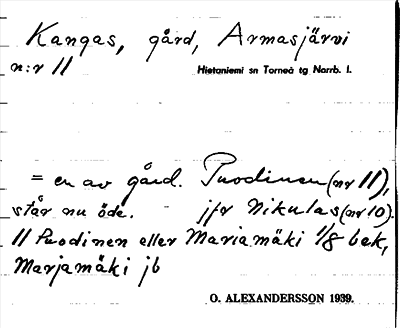 Kangas, gård, Armasjärvi
n:r 11
Hietaniemi sn Torneå tg Norrb. l.
= en av gård. Puodinen (nr 11),
står nu öde. jfr Nikulas (nr 10).
11 Puodinen eller Mariamäki 1/8 bek,
Marjamäki jb
O. ALEXANDERSSON 1939.